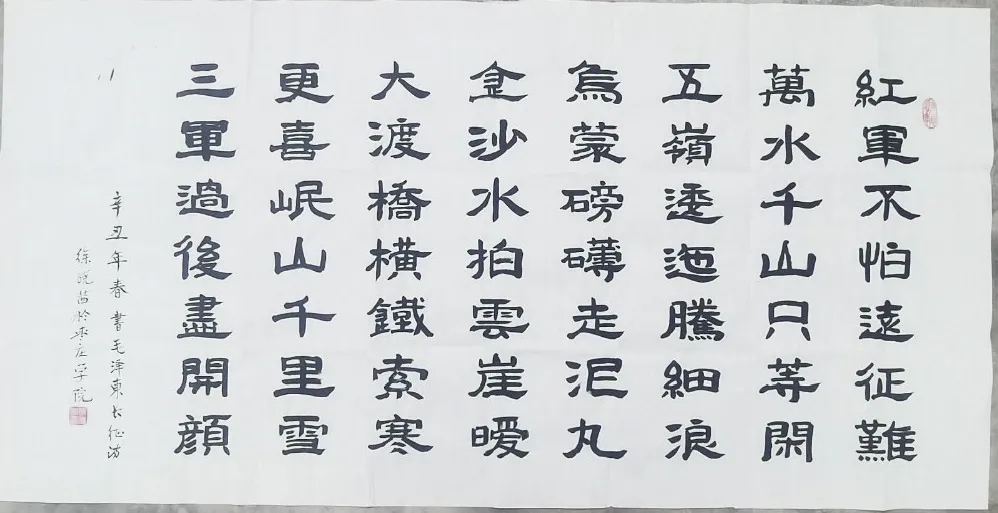 紅軍不怕遠征難
萬水千山只等閑
五嶺逶迤騰細浪
烏蒙磅礴走泥丸
金沙水拍雲崖暖
大渡橋橫鐵索寒
更喜岷山千里雪
三軍過後盡開顔
辛丑年春書毛泽東长征诗
徐曉苗於枣庄学院